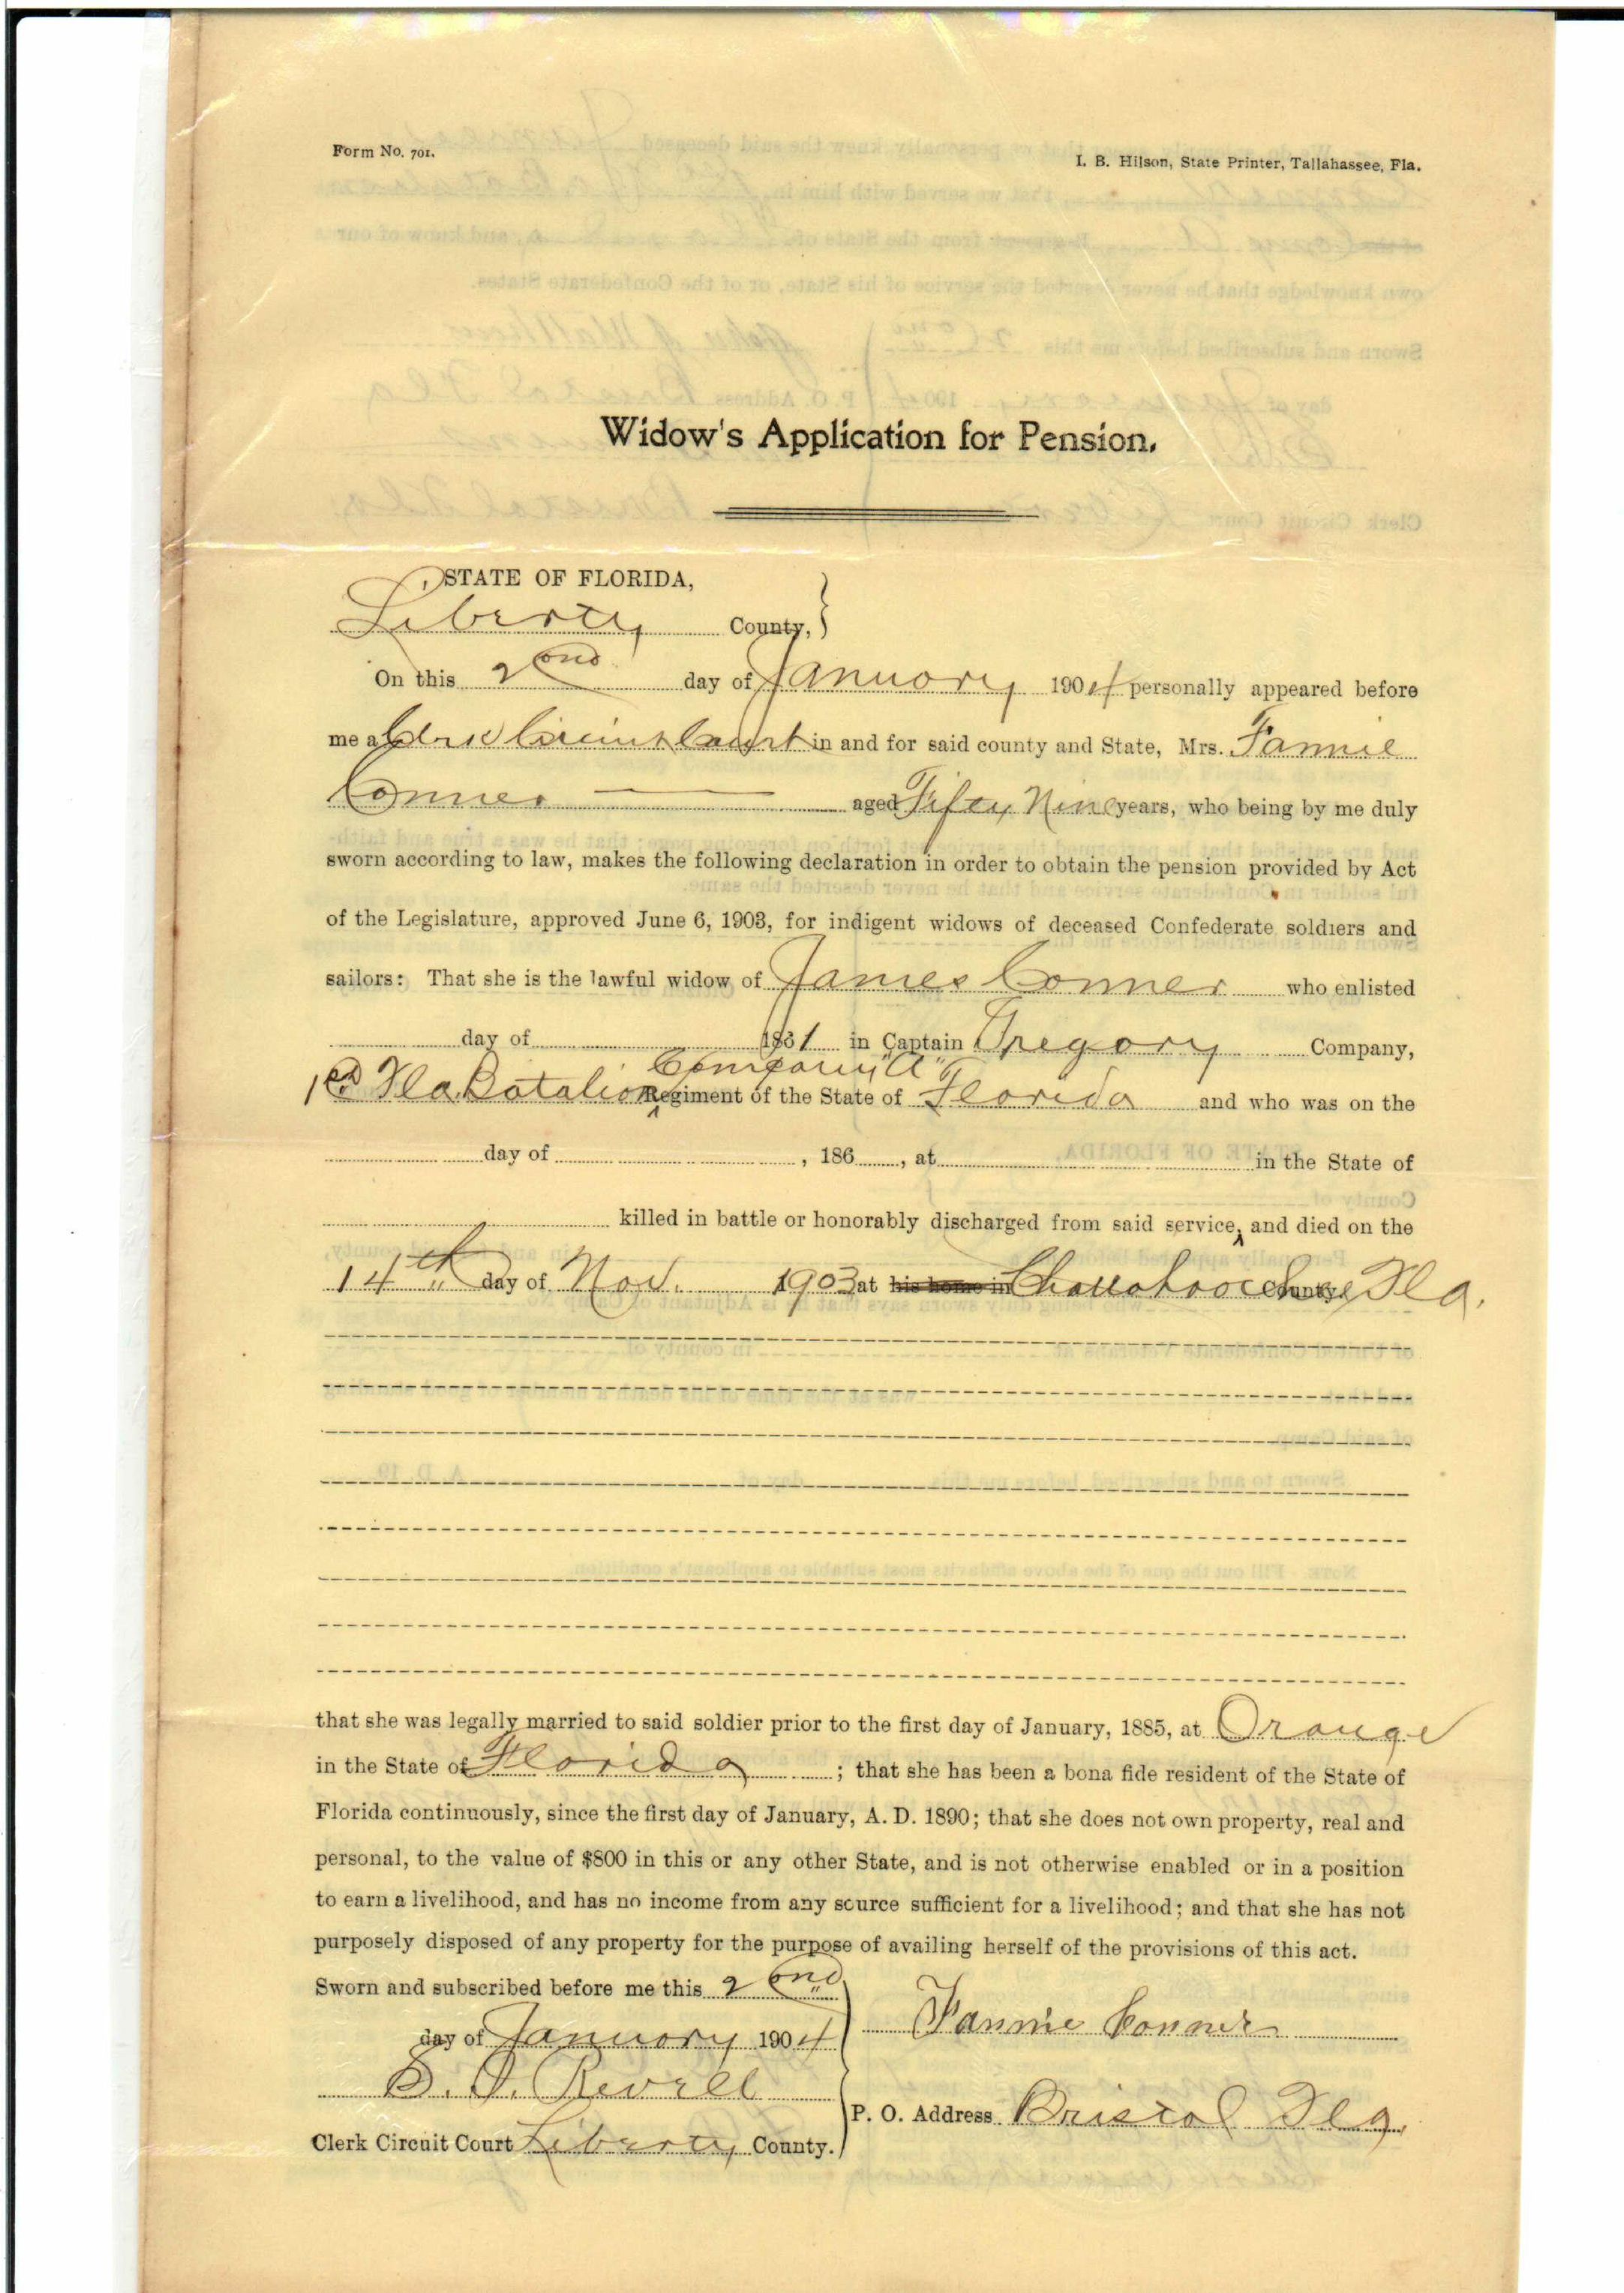 Form No. 701.
I. B. Hilson, State Printer, Tallahassee, Fla.
Widow's Application for Pension.
STATE OF FLORIDA,
Liberty County,
On this 2ond day of January 1904 personally appeared before
me a Clerk Circuit Court in and for said county and State, Mrs. Fannie
Conner aged Fifty Nine years, who being by me duly
sworn according to law, makes the following declaration in order to obtain the pension provided by Act
of the Legislature, approved June 6, 1903, for indigent widows of deceased Confederate soldiers and
sailors: That she is the lawful widow of James Conner who enlisted
day of 1861 in Captain Gregory Company,
Company "A"
Fla. Batalion Regiment of the State of Florida and who was on the
day of , 186 , at in the State of
killed in battle or honorably discharged from said service, and died on the
14th day of Nov. 1903 at his home in Chattahoochee County, Fla.
that she was legally married to said soldier prior to the first day of January, 1885, at Orange
in the State of Florida ; that she has been a bona fide resident of the State of
Florida continuously, since the first day of January, A. D. 1890; that she does not own property, real and
personal, to the value of $800 in this or any other State, and is not otherwise enabled or in a position
to earn a livelihood, and has no income from any source sufficient for a livelihood; and that she has not
purposely disposed of any property for the purpose of availing herself of the provisions of this act.
Sworn and subscribed before me this 2ond
day of January 1904
Fannie Conner
Revell
P. O. Address Bristol Fla.
Clerk Circuit Court Liberty County.